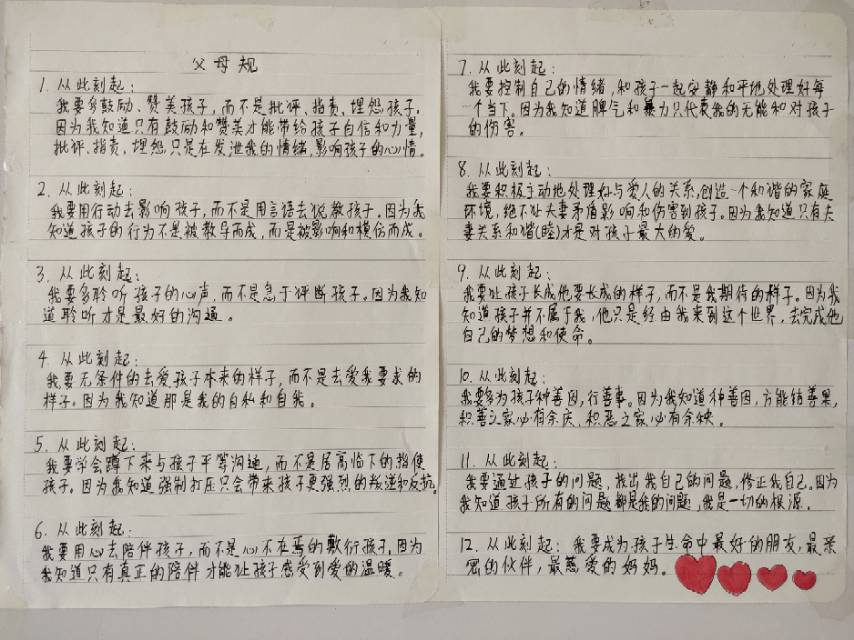 父母规
1. 从此刻起:
我要多鼓励、赞美孩子, 而不是批评、指责、埋怨孩子,
因为我知道只有鼓励和赞美才能带给孩子自信和力量,
批评、指责、埋怨只是在发泄我的情绪,影响孩子的心情。
2. 从此刻起:
我要用行动去影响孩子, 而不是用言语去说教孩子。因为我
知道孩子的行为不是被教导而成, 而是被影响和模仿而成。
3. 从此刻起:
我要多聆听孩子的心声, 而不是急于评断孩子。因为我知
道聆听才是最好的沟通。
4. 从此刻起:
我要无条件的去爱孩子本来的样子, 而不是去爱我要求的
样子。因为我知道那是我的自私和自我。
5. 从此刻起:
我要学会蹲下来与孩子平等沟通, 而不是居高临下的指使
孩子。因为我知道强制打压只会带来孩子更强烈的叛逆和反抗。
6. 从此刻起:
我要用心去陪伴孩子, 而不是心不在焉的敷衍孩子, 因为
我知道只有真正的陪伴才能让孩子感受到爱的温暖。
7. 从此刻起:
我要控制自己的情绪, 和孩子一起安静和平地处理好每
一个当下。因为我知道脾气和暴力只代表我的无能和对孩子
的伤害。
8. 从此刻起:
我要积极主动地处理好与爱人的关系,创造一个和谐的家庭
环境, 绝不让夫妻矛盾影响和伤害到孩子。因为我知道只有夫
妻关系和谐(睦)才是对孩子最大的爱。
9. 从此刻起:
我要让孩子长成他要长成的样子, 而不是我期待的样子。因为我
知道孩子并不属于我, 他只是经由我来到这个世界, 去完成他
自己的梦想和使命。
10. 从此刻起:
我要多为孩子种善因, 行善事。因为我知道种善因, 方能结善果,
积善之家必有余庆, 积恶之家必有余殃。
11. 从此刻起:
我要通过孩子的问题, 找出我自己的问题, 修正我自己。因为
我知道孩子所有的问题都是我的问题, 我是一切的根源。
12. 从此刻起: 我要成为孩子生命中最好的朋友, 最亲
密的伙伴, 最慈爱的妈妈。